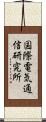 国際電気通
信研究所